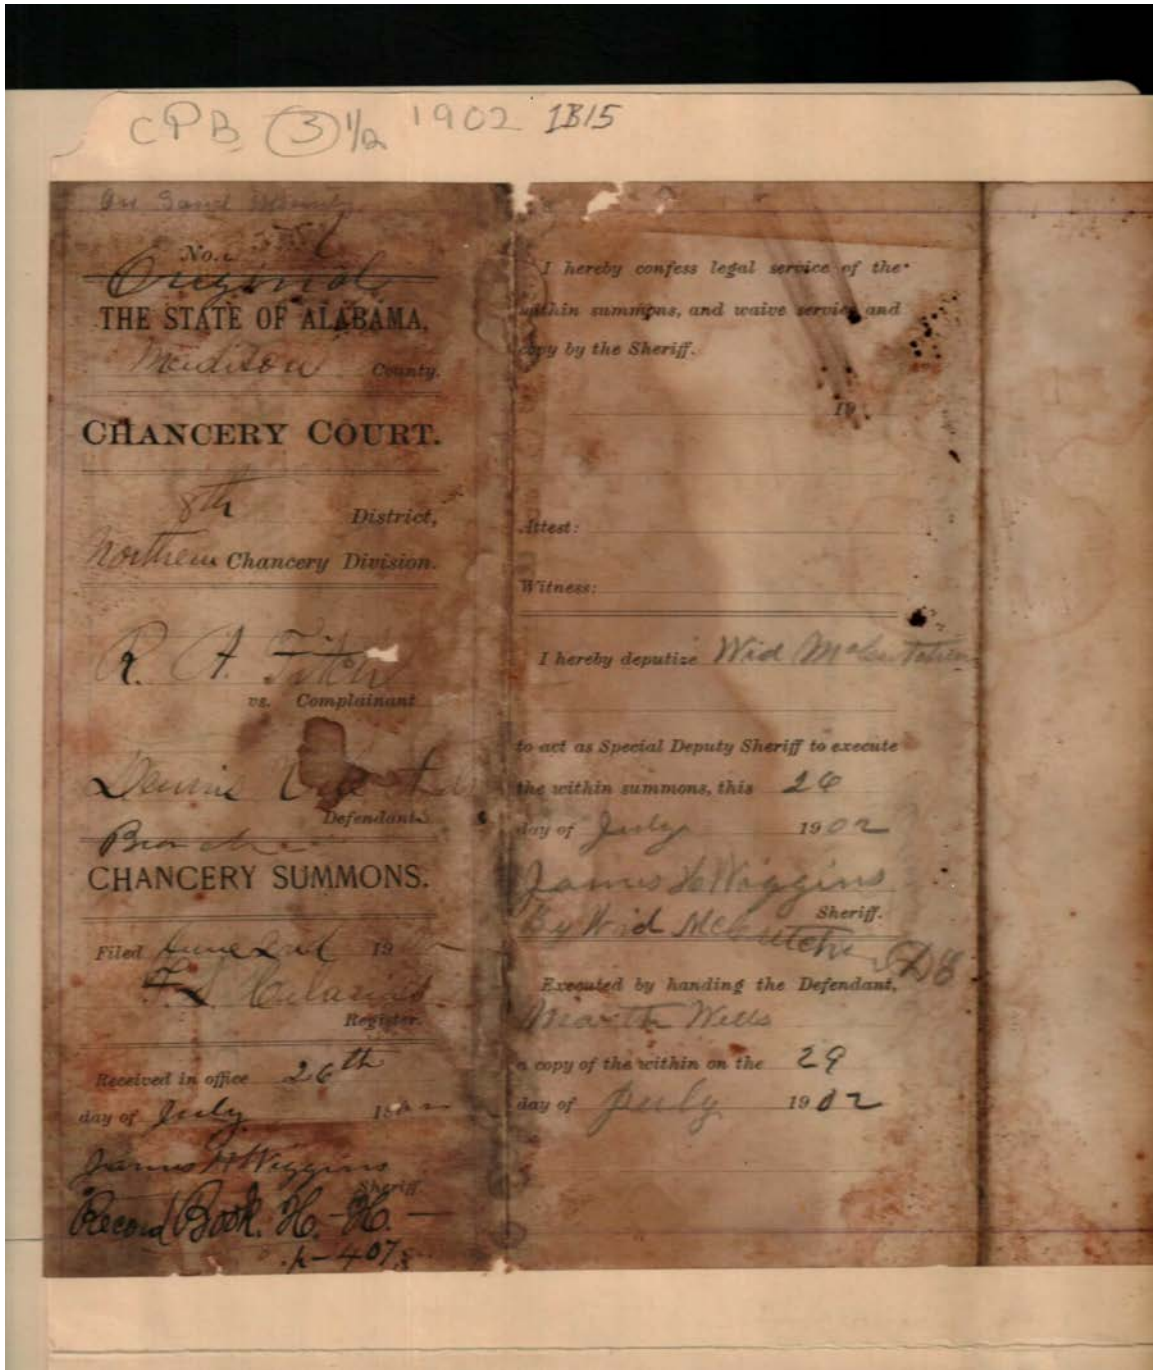 CPB (3) 1/2 1902 1B15
On Sand
No.
Original
THE STATE OF ALABAMA,
Madison County.
CHANCERY COURT.
8th District,
Northern Chancery Division.
R. A.
vs. Complainant
Dennis
Defendant
CHANCERY SUMMONS.
Filed June 2nd 19
Register.
Received in office 26th
day of July 190
James H Wiggins
Sheriff.
Record Book. H.-H.—
p-407
I hereby confess legal service of the
within summons, and waive service and
copy by the Sheriff.
19
Attest:
Witness:
I hereby deputize Wid McCutchen
to act as Special Deputy Sheriff to execute
the within summons, this 26
day of July 1902
James H Wiggins
Sheriff.
By Wid McCutchen DS
Executed by handing the Defendant,
Marth Wells
a copy of the within on the 29
day of July 1902